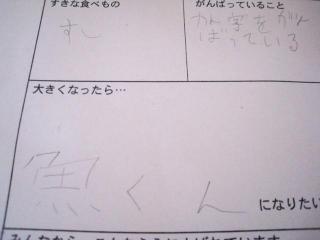 すきな食べもの
すし
がんばっていること
かん字をがん
ばっている
大きくなったら…
魚くん
になりたい